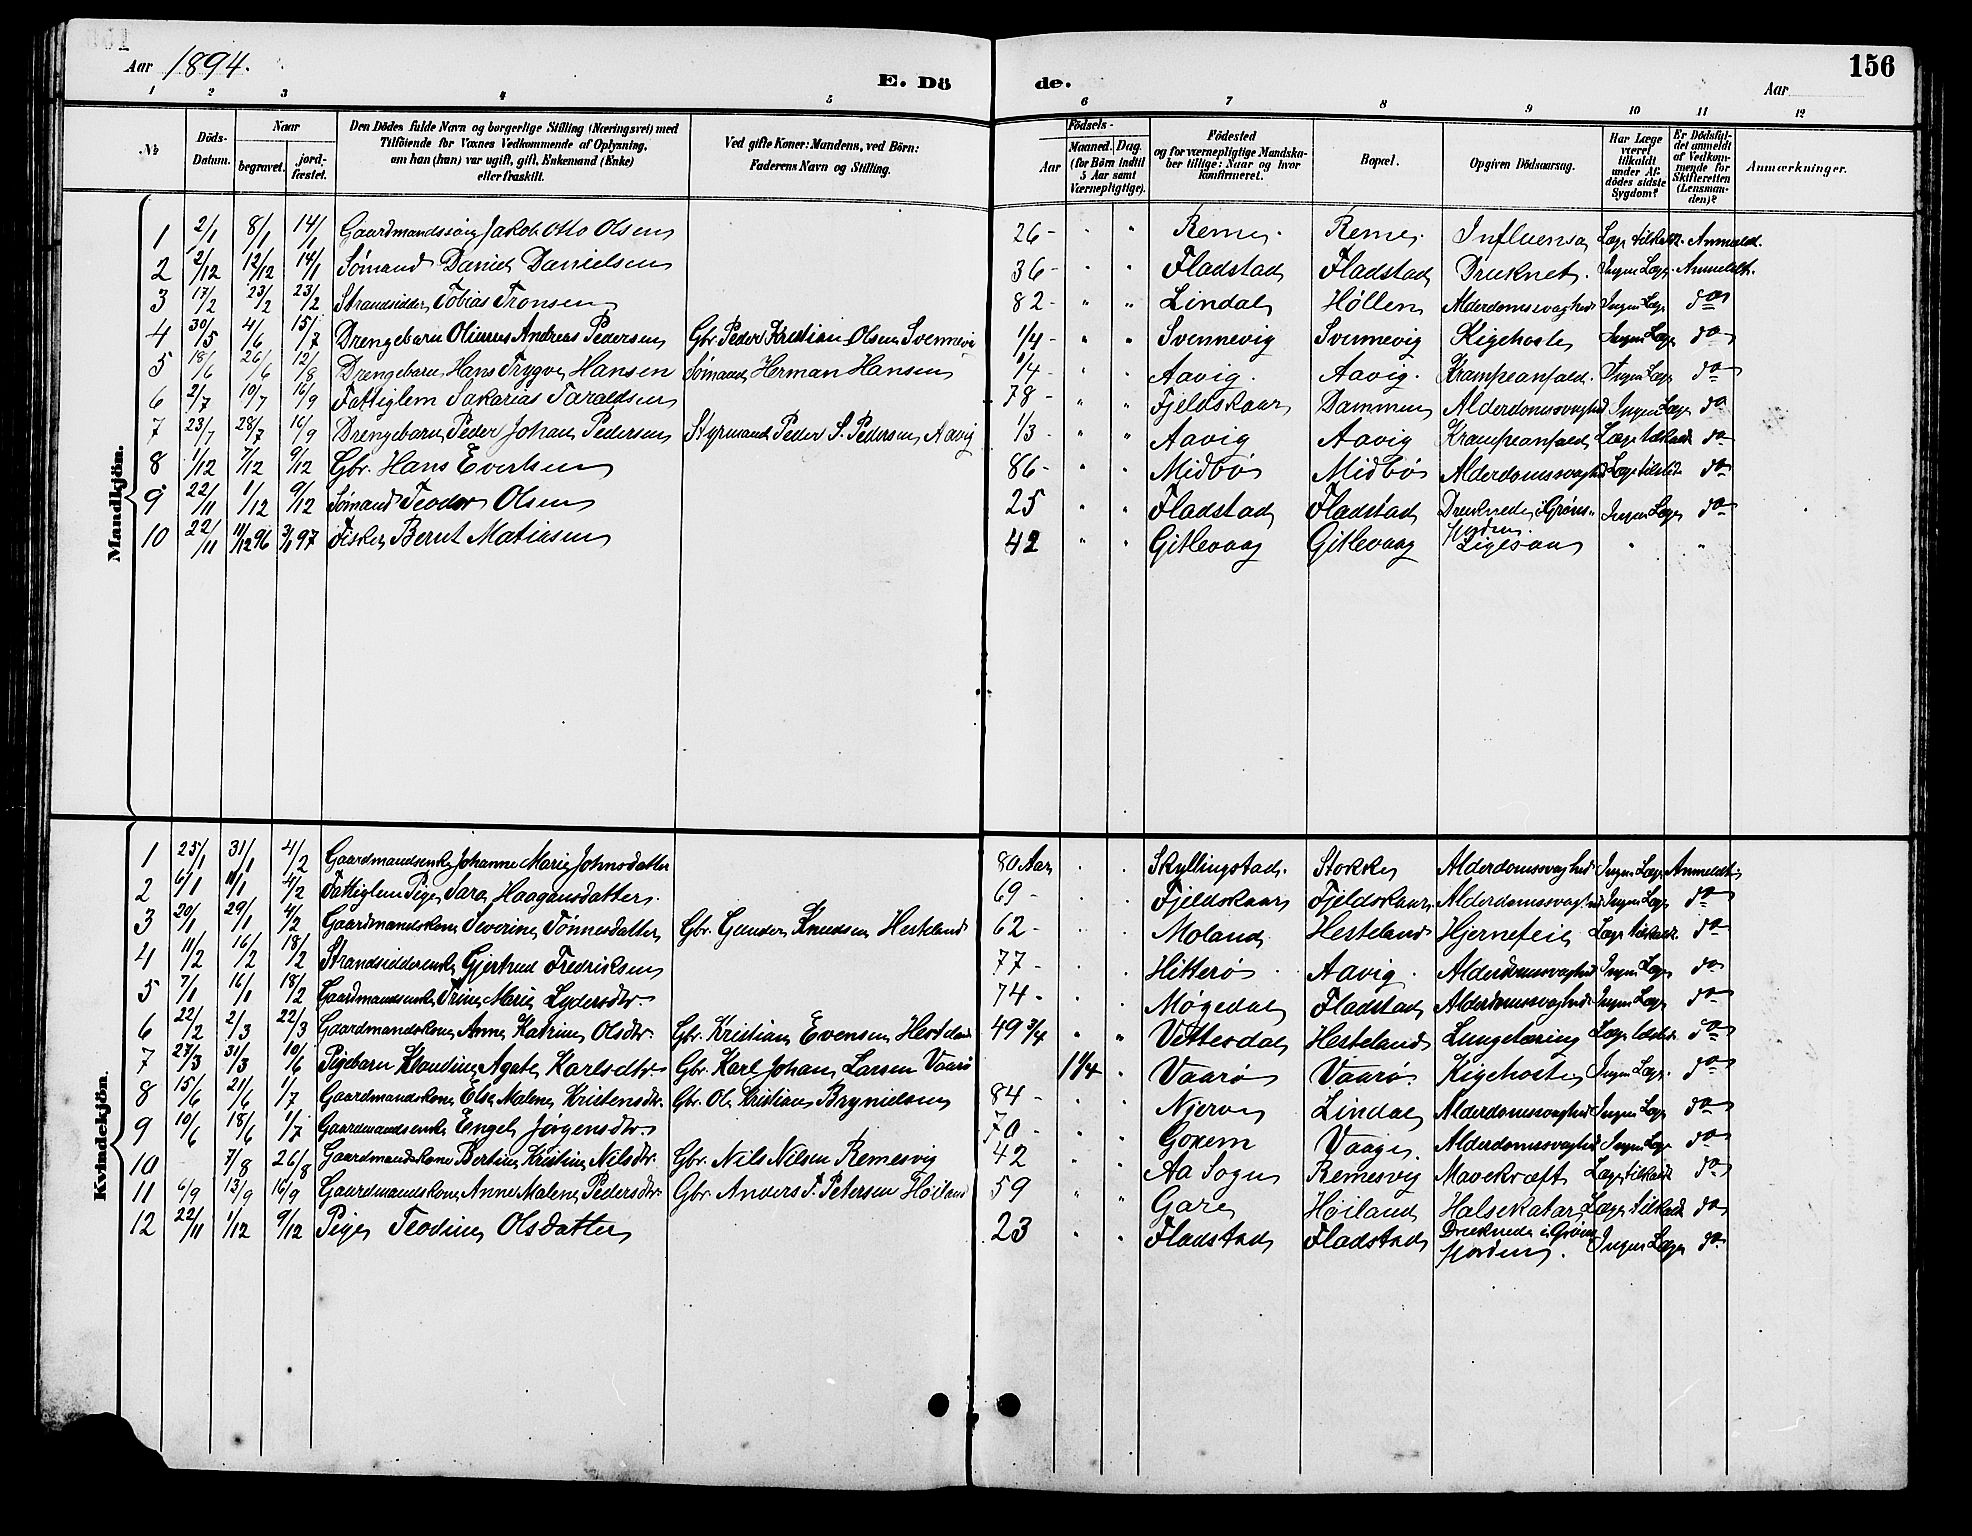 Aar 1894.
E. Döde.
Aar
156
1 2 3 4 5 6 7 8 9 10 11 12
№
Döds-Datum.
Naar
begravet.
jord-fæstet.
Den Dödes fulde Navn og borgerlige Stilling (Næringsvei) med
Tilföiende for Voxnes Vedkommende af Oplysning,
om han (hun) var ugift, gift, Enkemand (Enke)
eller fraskilt.
Ved gifte Koner: Mandens, ved Börn:
Faderens Navn og Stilling.
Födsels-
Aar
Maaned. Dag.
(for Börn indtil
5 Aar samt
Værnepligtige).
Födested
og for værnepligtige Mandska-
ber tillige: Naar og hvor
konfirmeret.
Bopæl.
Opgiven Dödsaarsag.
Har Læge
været
tilkaldt
under Af-
dödes sidste
Sygdom?
Er Dödsfal-
det anmeldt
af Vedkom-
mende for
Skifteretten
(Lensman-
den)?
Anmærkninger.
Mandkjön.
1 2/1 8/1 14/1 Gaardmandssøn Jakob Otto Olsen 26 - " Reme. Reme. Influensa Læge tilkaldt. Anmeldt.
2 2/12 12/12 14/1 Sømand Daniel Danielsen 36 - " " Fladstad Fladstad Druknet. Ingen Læge Anmeldt.
3 17/2 23/2 23/2 Strandsidder Tobias Tronsen 82 - " " Lindal Høllen Alderdomssvaghed Ingen Læge do
4 30/5 4/6 15/7 Drengebarn Olinus Andreas Pedersen Gbr. Peder Kristian Olsen Svennevi 1/4 - " " Svennevig Svennevig Kigehoste Ingen Læge do
5 18/6 26/6 12/8 Drengebarn Hans Trygve Hansen Sømand Herman Hansen 1/4 - " " Aavig. Aavig. Krampeanfald. Ingen Læge do
6 2/7 10/7 16/9 Fattiglem Sakarias Taraldsen 78 - " " Fjeldskaar Dammen Alderdomssvaghed Ingen Læge do
7 23/7 28/7 16/9 Drengebarn Peder Johan Pedersen Styrmand Peder S. Pedersen, Aavig 1/3 - " " Aavig Aavig Krampeanfald Læge tilkaldt do
8 1/12 7/12 9/12 Gbr. Hans Evertsen 86 - " " Midbø Midbø Alderdomssvaghed Læge tilkaldt. do
9 22/11 1/12 9/12 Sømand Teodor Olsen 25 " " Fladstad Fladstad Druknede i Grøns- Ingen Læge do
fjorden
10 22/11 11/12 96 3/1 97 Fisker Bernt Matiasen 42 " " Gitlevaag Gitlevaag " "
Kvindekjön.
1 25/1 31/1 4/2 Gaardmandsenke Johanne Marie Johnsdatter 80 Aar . . Skyllingstad. Stokke Alderdomssvaghed Ingen Læge Anmeldt
2 6/1 11/1 4/2 Fattiglem Pige Sara Haagensdatter. 69 - . . Fjeldskaar Fjeldskaar. Alderdomssvaghed Ingen Læge do
3 20/1 29/1 4/2 Gaardmandskone Severine Tønnesdatter Gbr. Gunder Knudsen Hesteland 62 - . . Moland Hesteland Hjernefeil Læge tilkaldt. do
4 11/2 16/2 18/2 Strandsidderenke Gjertrud Fredriksen 77 - . . Hitterø Aavig. Alderdomssvaghed Ingen Læge do
5 7/1 16/1 18/2 Gaardmandsenke Trine Marie Lydersdtr. 74 - . . Møgedal Fladstad Alderdomssvaghed Ingen Læge do
6 22/2 2/3 22/3 Gaardmandskone Anne Katrine Olsdtr. Gbr. Kristian Evensen Hesteland 49 3/4 " " Vettesdal Hesteland Lungetæring Læge tilkaldt. do
7 27/3 31/3 10/6 Pigebarn Klaudine Agate Karlsdtr. Gbr. Karl Johan Larsen Vaarø 1 1/4 " Vaarø Vaarø. Kigehoste Ingen Læge. do
8 15/6 21/6 1/7 Gaardmandskone Else Malene Kristensdtr. Gbr. Ole Kristian Brynildsen 84 - " " Njerve Lindal Alderdomssvaghed Ingen Læge do
9 10/6 18/6 1/7 Gaardmandsenke Engel Jørgensdtr. 70 - " " Gonem Vaage. Alderdomssvaghed Ingen Læge do
10 7/8 26/8 Gaardmandskone Bertine Kristine Nilsdtr. Gbr. Nils Nilsen Remesvig 42 " " Aa Sogn Remesvig Mavekræft Læge tilkaldt do
11 6/9 13/9 16/9 Gaardmandskone Anne Malene Pedersdtr. Gbr. Anders T. Petersen Høiland 59 " " Gare Høiland Halsekatar Læge tilkaldt do
12 22/11 1/12 9/12 Pige Teodine Olsdatter 23 " " Fladstad Fladstad Druknede i Grøns Ingen Læge do
fjorden.